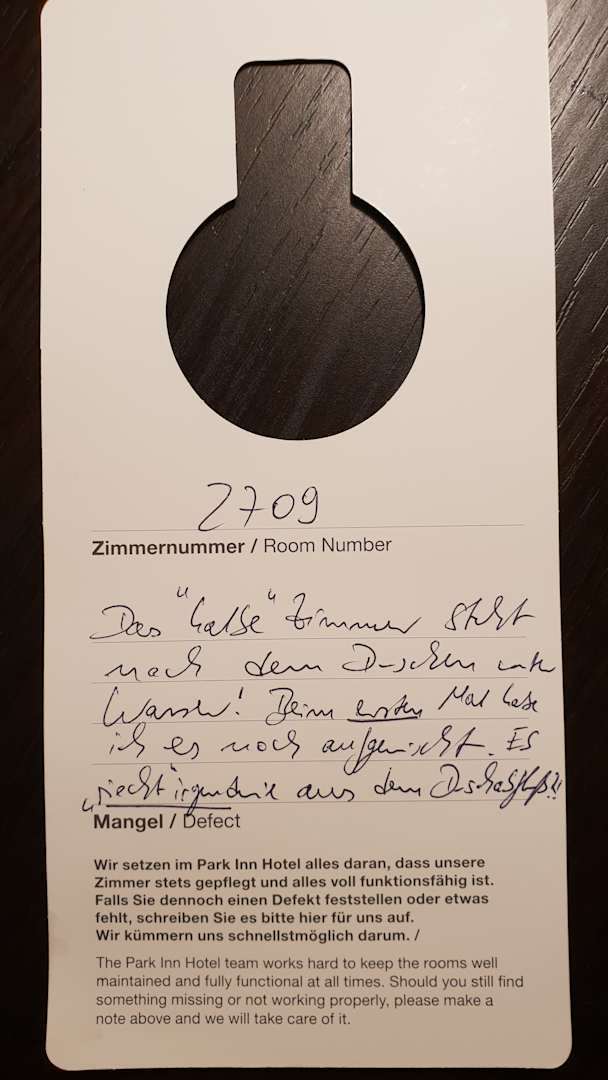 2709
Zimmernummer / Room Number
Das "halbe" Zimmer steht
nach dem Duschen unter
Wasser! Beim ersten Mal habe
ich es noch aufgewischt. Es
"riecht" irgendwie aus dem Duschabfluß?!
Mangel / Defect
Wir setzen im Park Inn Hotel alles daran, dass unsere
Zimmer stets gepflegt und alles voll funktionsfähig ist.
Falls Sie dennoch einen Defekt feststellen oder etwas
fehlt, schreiben Sie es bitte hier für uns auf.
Wir kümmern uns schnellstmöglich darum. /
The Park Inn Hotel team works hard to keep the rooms well
maintained and fully functional at all times. Should you still find
something missing or not working properly, please make a
note above and we will take care of it.